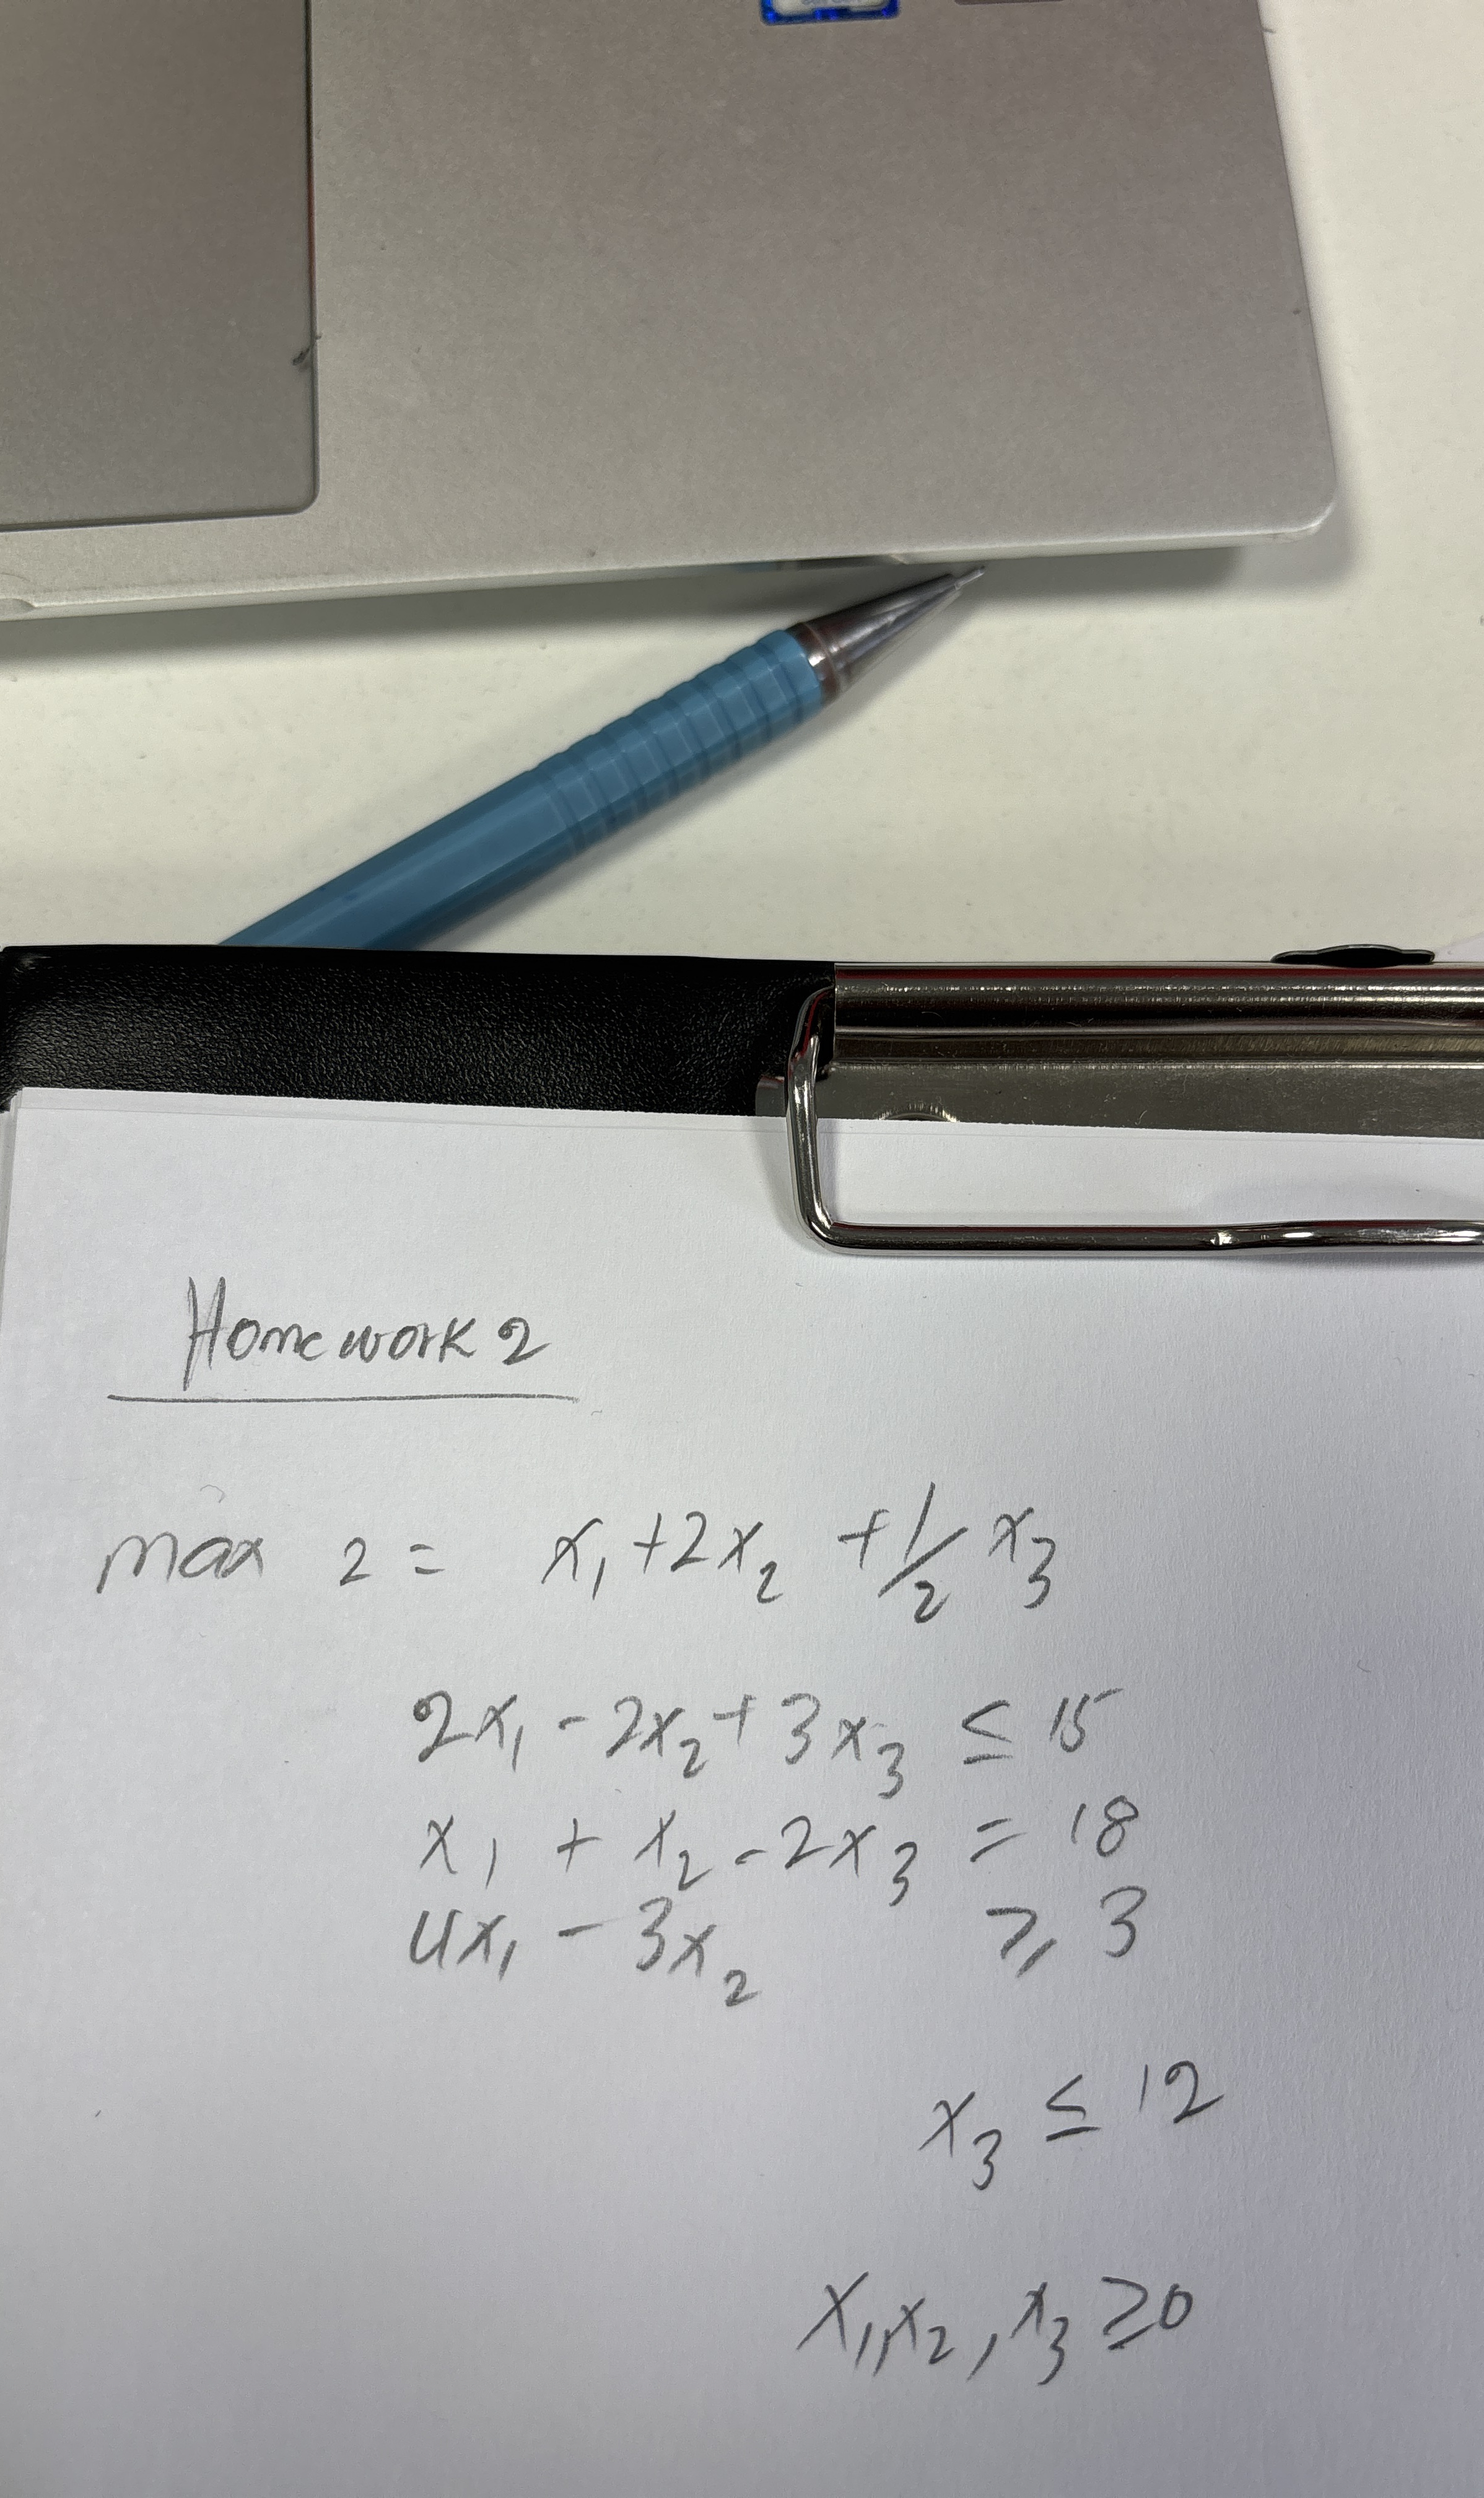 Homework 2
max z = x₁ + 2x₂ + 1/2 x₃
2x₁ - 2x₂ + 3x₃ ≤ 15
x₁ + x₂ - 2x₃ = 18
4x₁ - 3x₂ ≥ 3
x₃ ≤ 12
x₁, x₂, x₃ ≥ 0